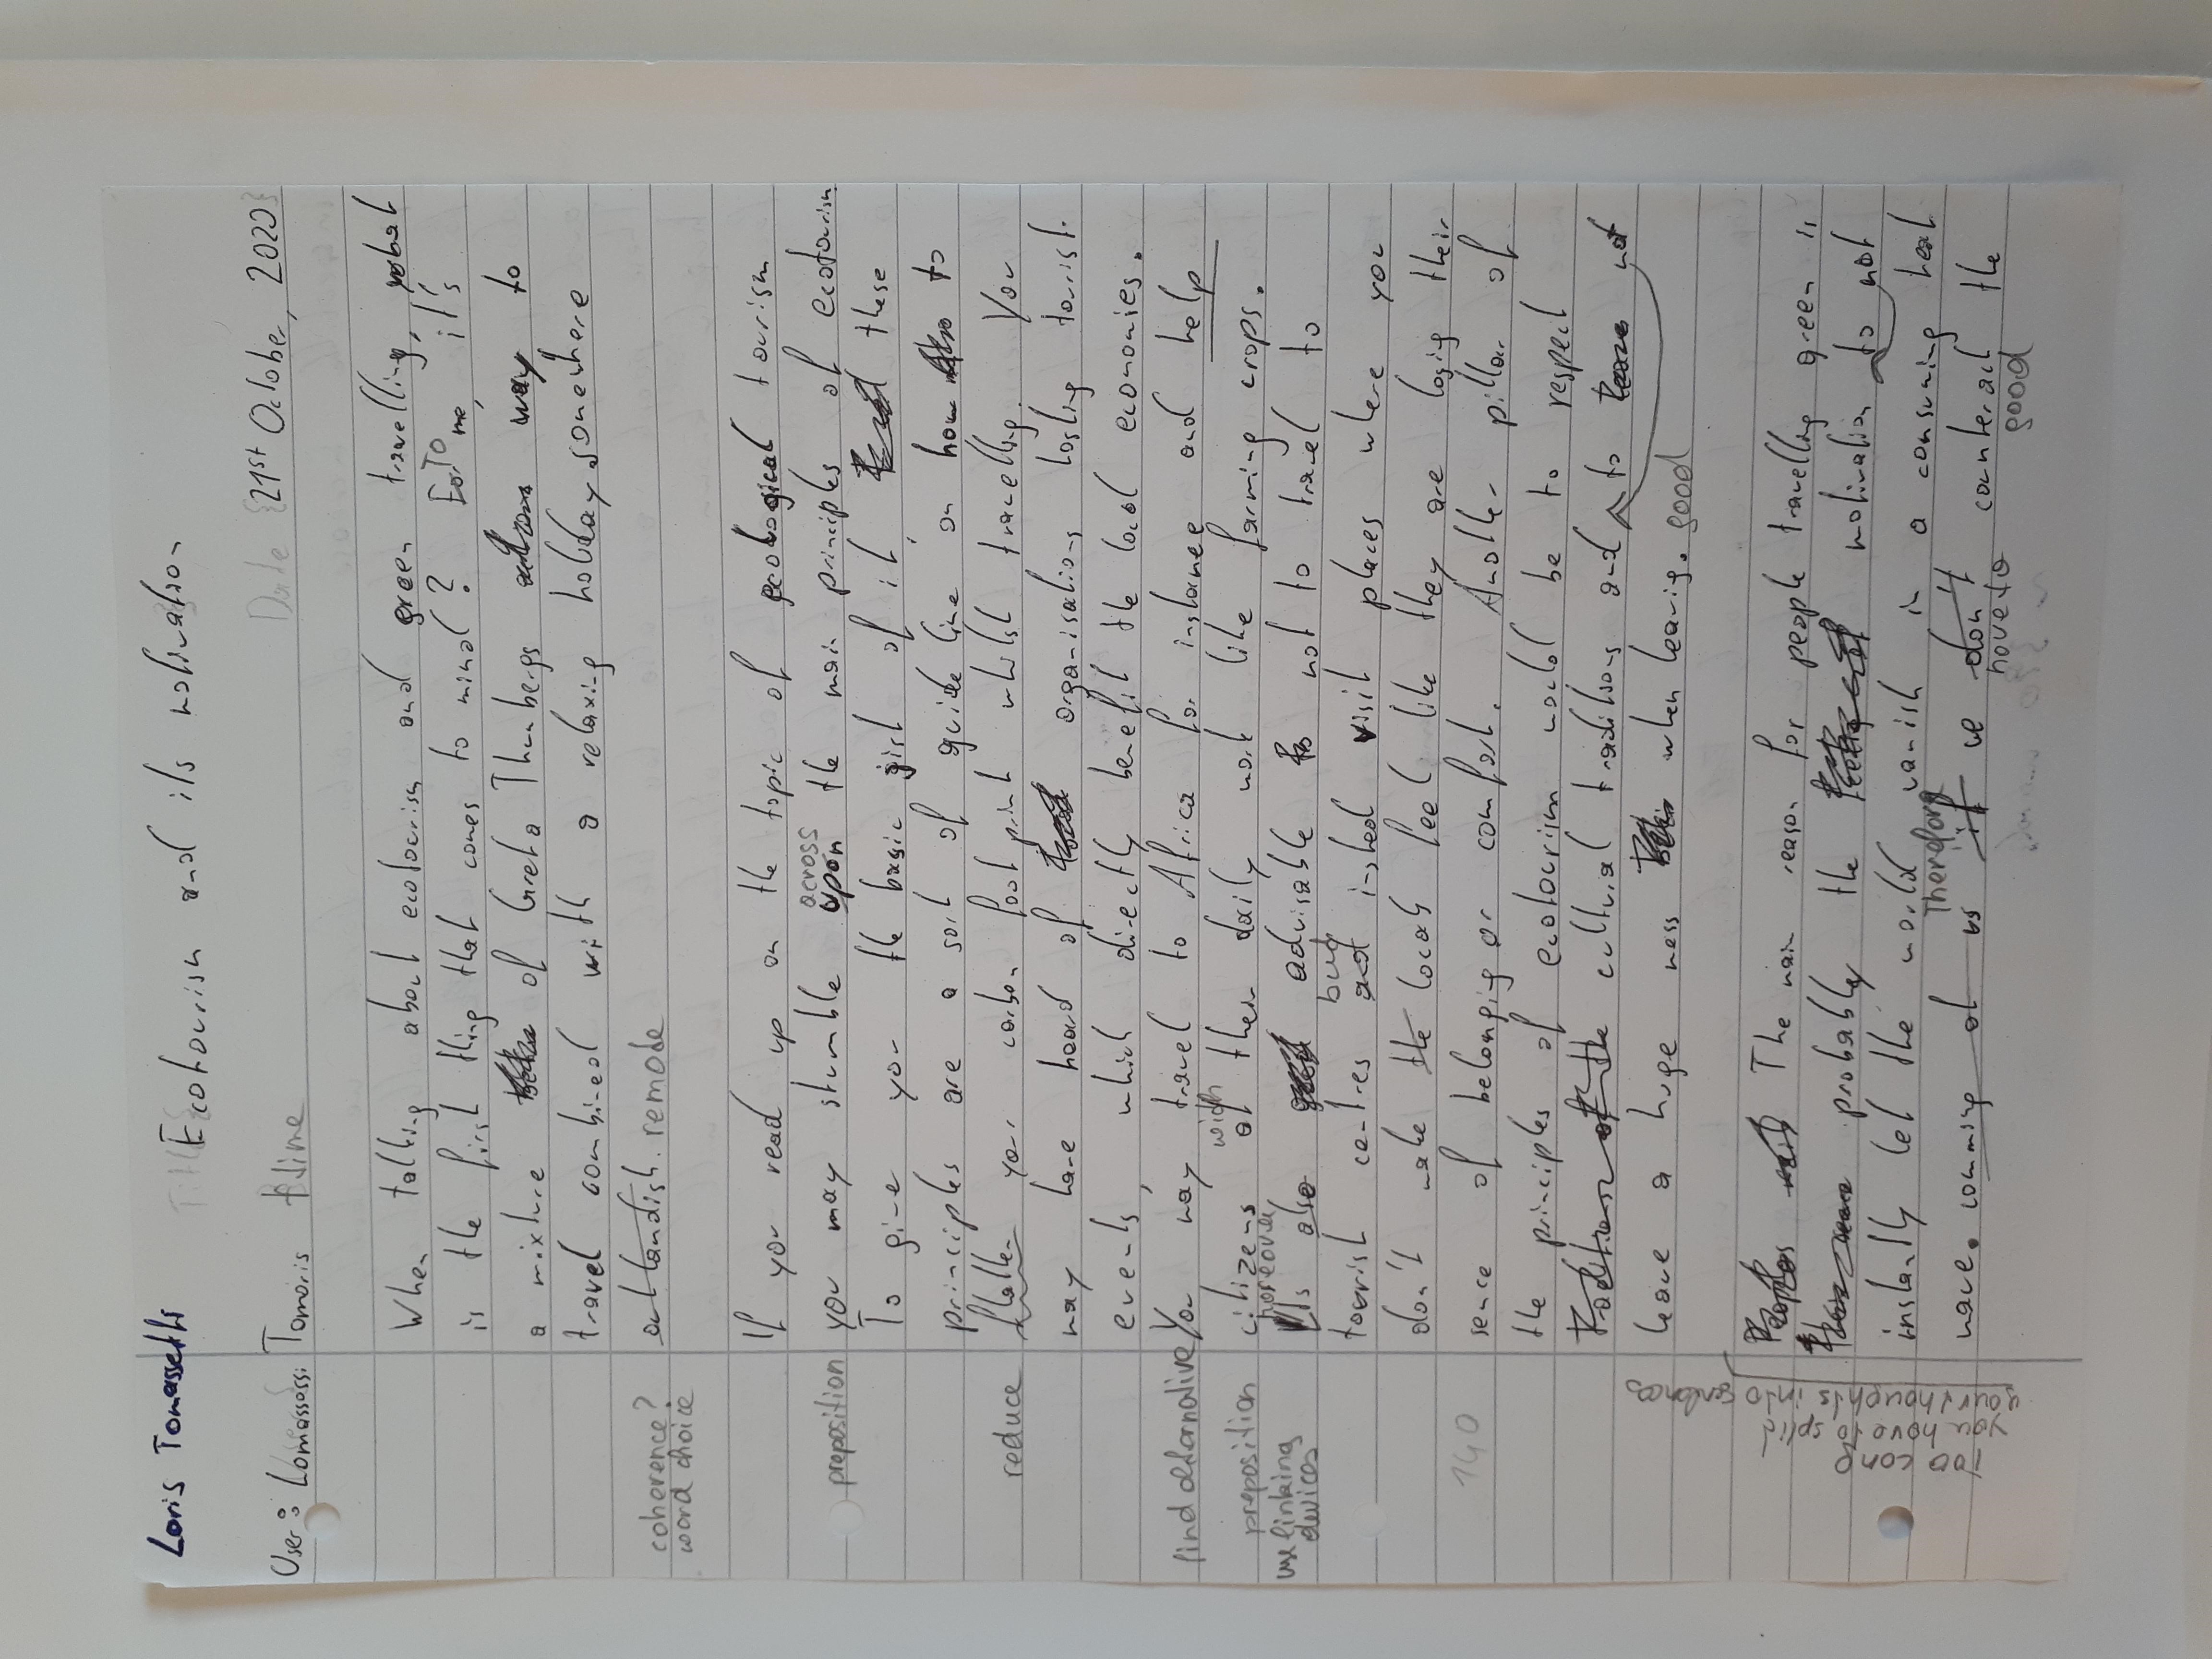 Loris Tomassetti
Ecotourism and its motivation
User: Lomassossi Tomoris time
Date 21st October, 2020
When talking about ecotourism and green travelling, what
is the first thing that comes to mind? For To me, it's
a mixture of Greta Thunbergs way to
travel combined with a relaxing holiday somewhere
coherence? outlandish. remode
word choice
If you read up on the topic of ecological tourism
across
preposition you may stumble upon the main principles of ecotourism
To give you the basic gist of it, these
principles are a sort of guide line on how to
reduce flatten your carbon footprint whilst travelling. You
may have heard of organisations hosting tourist
events, which directly benefit the local economies.
find alternative You may travel to Africa for instance and help
with
preposition citizens at their daily work like farming crops.
moreover,
use linking devices Its also advisable not to travel to
but
tourist centres and insted visit places where you
don't make the locals feel like they are losing their
140 sence of belonging or comfort. Another pillar of
the principles of ecotourism would be to respect
Traditions of the cultural traditions and to leave not
leave a huge mess when leaving. good
The main reason for people travelling green is
probably the motivation to not
instantly let the world vanish in a consuming heat
Therefore
wave. comming at us if we don't counteract the
have to
good
Too long
you have to split
your thoughts into sentences